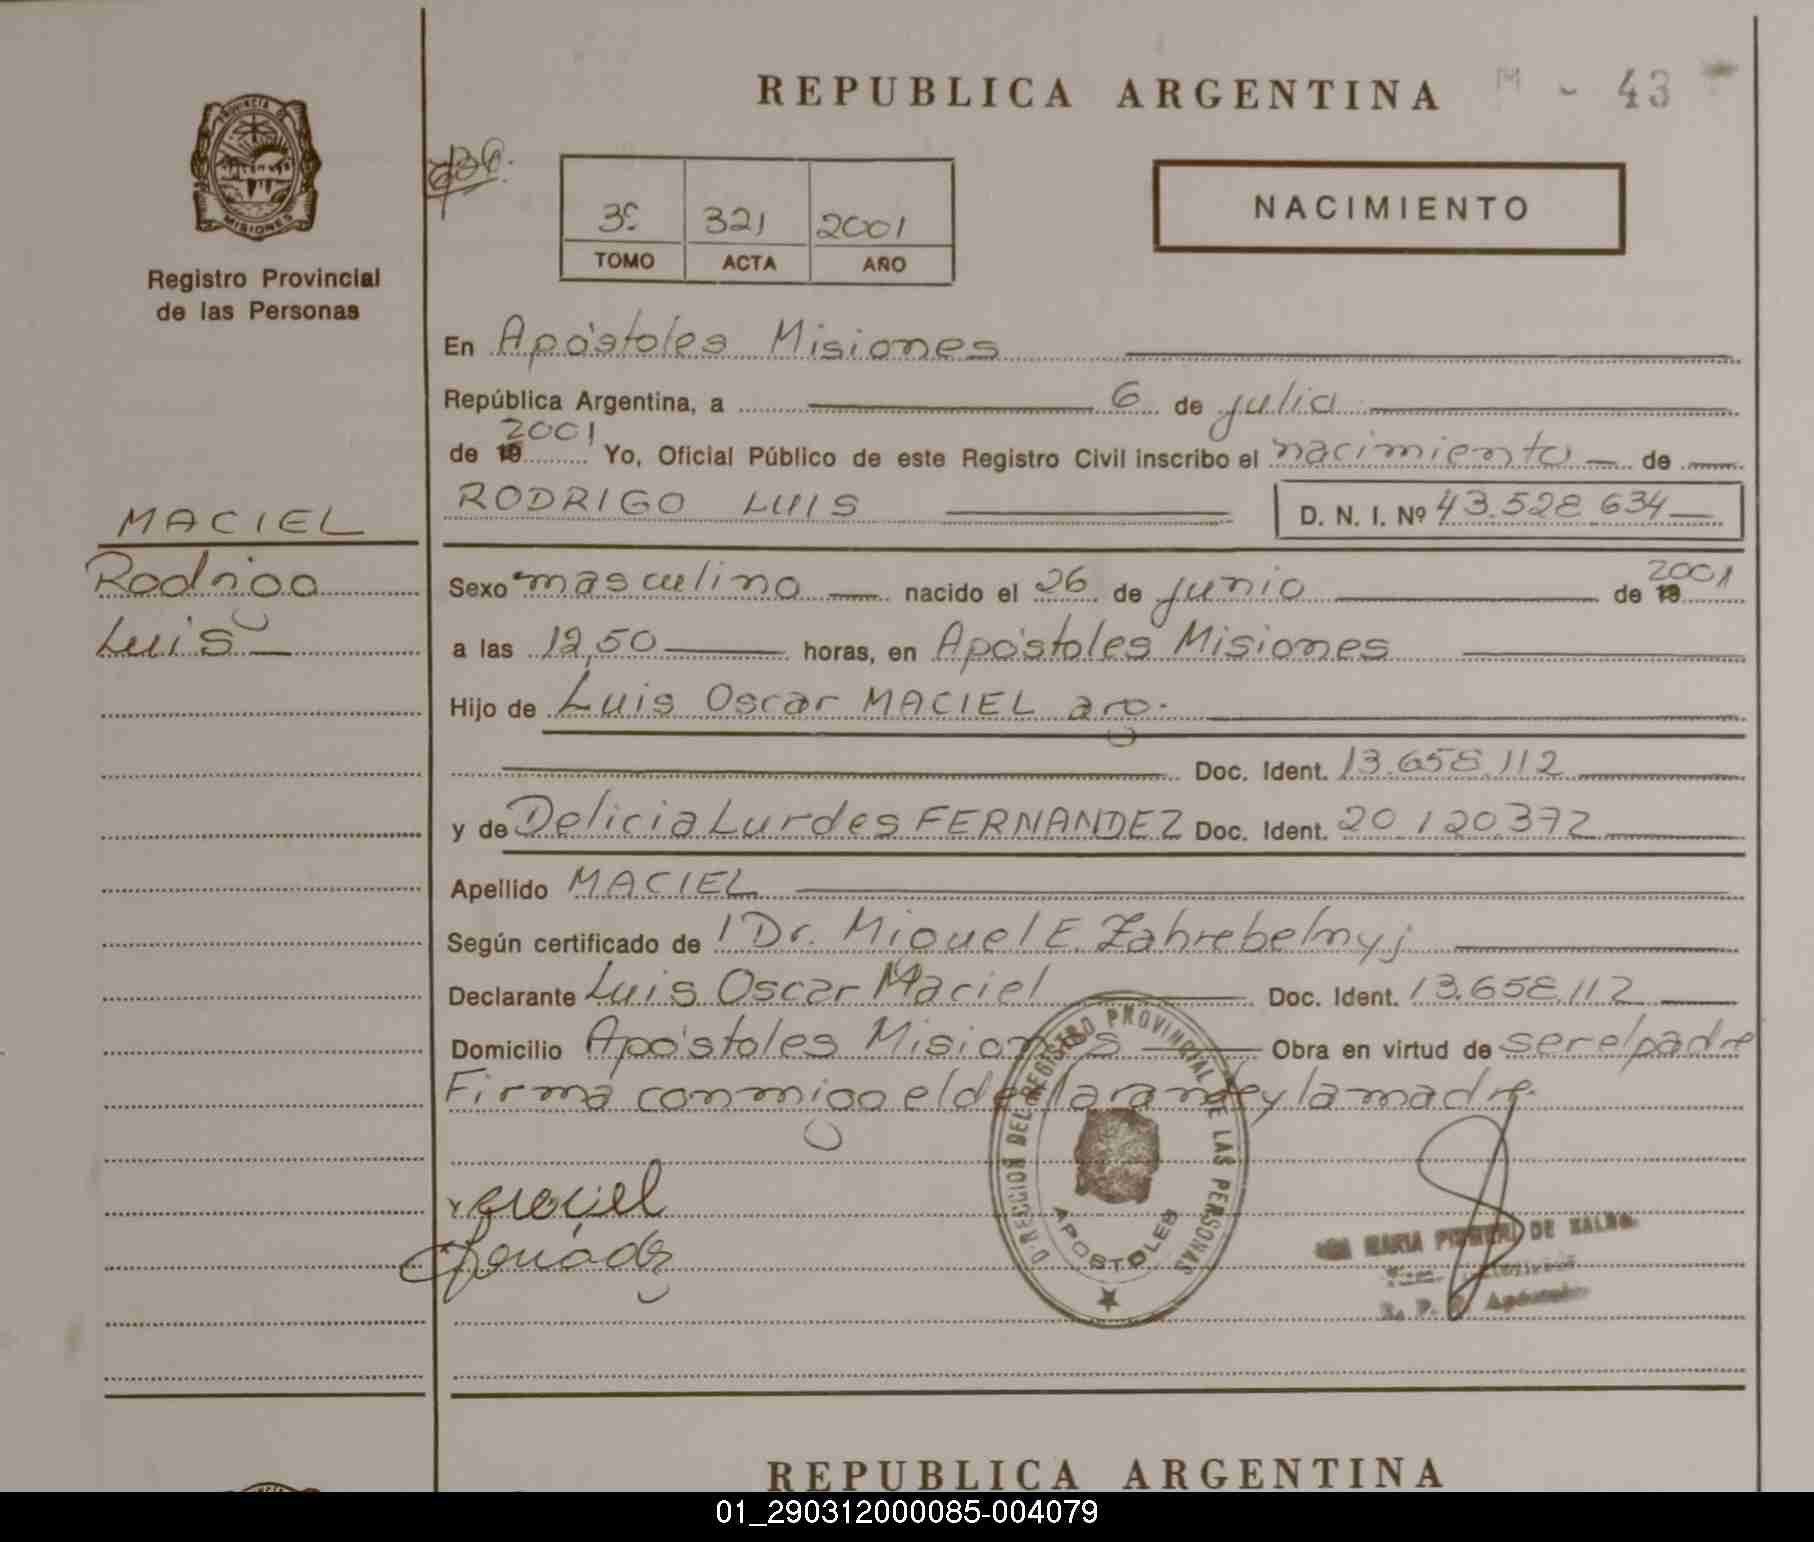 REPUBLICA ARGENTINA M - 43
PROVINCIA DE
MISIONES
Registro Provincial
de las Personas
3º 321 2001
TOMO ACTA AÑO
NACIMIENTO
En Apóstoles Misiones
República Argentina, a 6 de julio
de 19 2001 Yo, Oficial Público de este Registro Civil inscribo el nacimiento de
RODRIGO LUIS D. N. I. Nº 43.528.634
MACIEL
Rodrigo
Luis
Sexo masculino nacido el 26 de junio de 19 2001
a las 12,50 horas, en Apóstoles Misiones
Hijo de Luis Oscar MACIEL arg.
Doc. Ident. 13.658.112
y de Delicia Lurdes FERNANDEZ Doc. Ident. 20.120.372
Apellido MACIEL
Según certificado de Dr. Miguel E. Zahrebelnyj
Declarante Luis Oscar Maciel Doc. Ident. 13.658.112
Domicilio Apóstoles Misiones Obra en virtud de ser el padre
Firma conmigo el declarante y la madre.
DIRECCION DEL REGISTRO PROVINCIAL DE LAS PERSONAS
APOSTOLES
Maciel
MARIA DE
R. P. Apóstoles
REPUBLICA ARGENTINA
01_290312000085-004079